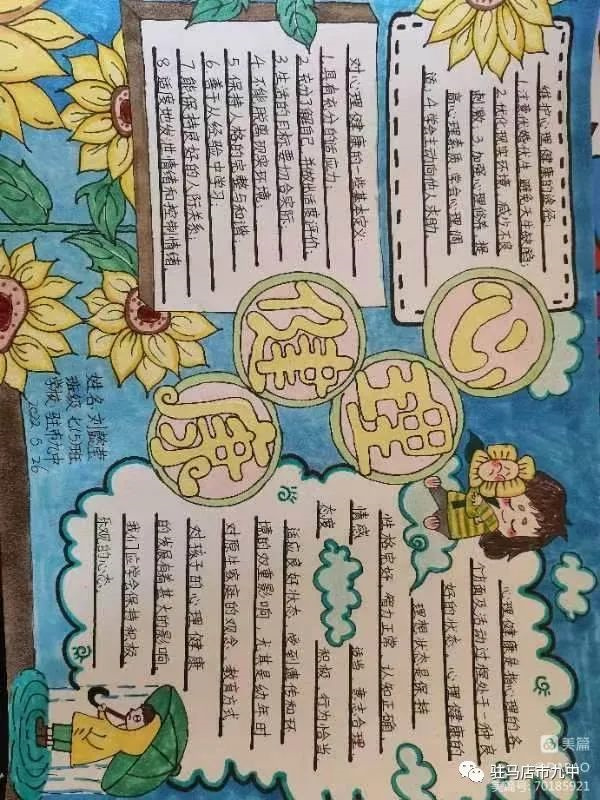 心理健康
维护心理健康的途径:
1.注意优婚优生 避免天生缺陷;
2.优化现实环境,减少不良
刺激;3.加强心理修养 提
高心理素质 学会心理调
适;4.学会主动向他人求助.
对心理健康的一些基本定义:
1.具有充分的适应力.
2.充分了解自己,并做出适度评价;
3.生活的目标要切合实际.
4.不能脱离现实环境.
5.保持人格的完整与和谐
6.善于从经验中学习.
7.能保持良好的人际关系.
8.适度地发泄情绪和控制情绪
心理健康是指心理的各
个方面及活动过程处于一种良
好的状态. 心理健康的
理想状态是保持
性格完好 智力正常 认知正确
情感 适当 意志合理
态度 积极 行为恰当
适应良好状态. 受到遗传和环
境的双重影响. 尤其是幼年时
对原生家庭的观念 教育方式
对孩子的心理健康
的发展有着甚大的影响.
我们应学会保持积极
乐观的心态.
姓名:刘懿莹
班级 七(5)班
学校 驻市九中
2022.5.26
美篇
美篇号:70185921
驻马店市九中